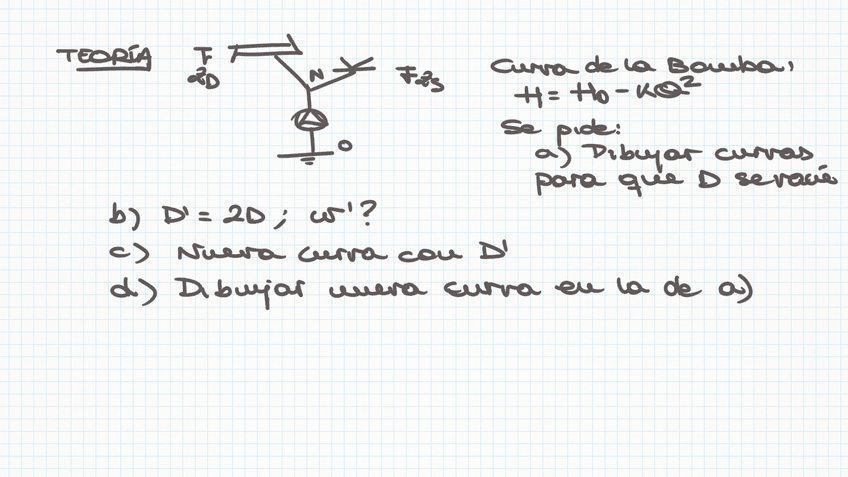 TEORÍA
T
ZD
N
O
Curva de la Bomba:
H = H0 - KQ²
Se pide:
a) Dibujar curvas
para que D se vacíe
b) D' = 2D ; w'?
c) Nueva curva con D'
d) Dibujar nueva curva en la de a)